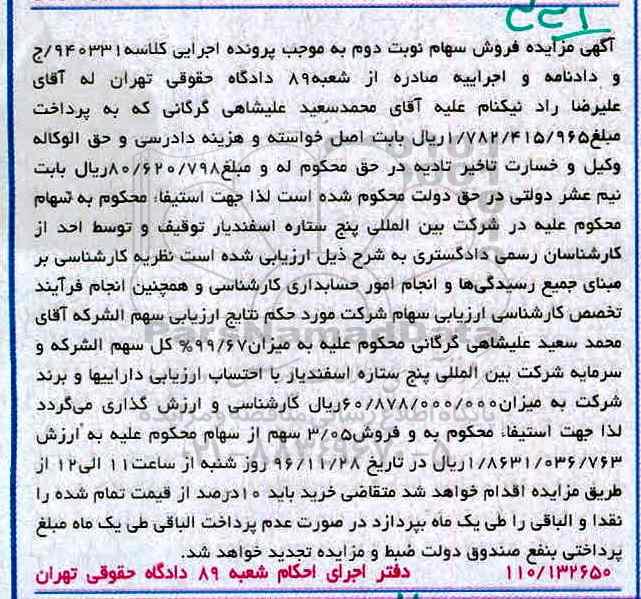 آگهی مزایده فروش سهام نوبت دوم به موجب پرونده اجرایی کلاسه۹۴۰۳۳۱/ج
و دادنامه و اجراییه صادره از شعبه۸۹ دادگاه حقوقی تهران له آقای
علیرضا راد نیکنام علیه آقای محمدسعید علیشاهی گرگانی که به پرداخت
مبلغ۱/۷۸۲/۴۱۵/۹۶۵ریال بابت اصل خواسته و هزینه دادرسی و حق الوکاله
وکیل و خسارت تاخیر تادیه در حق محکوم له و مبلغ۸۰/۶۲۰/۷۹۸ریال بابت
نیم عشر دولتی در حق دولت محکوم شده است لذا جهت استیفاء محکوم به سهام
محکوم علیه در شرکت بین المللی پنج ستاره اسفندیار توقیف و توسط احد از
کارشناسان رسمی دادگستری به شرح ذیل ارزیابی شده است نظریه کارشناسی بر
مبنای جمیع رسیدگی‌ها و انجام امور حسابداری کارشناسی و همچنین انجام فرآیند
تخصص کارشناسی ارزیابی سهام شرکت مورد حکم نتایج ارزیابی سهم الشرکه آقای
محمد سعید علیشاهی گرگانی محکوم علیه به میزان۹۹/۶۷% کل سهم الشرکه و
سرمایه شرکت بین المللی پنج ستاره اسفندیار با احتساب ارزیابی داراییها و برند
شرکت به میزان۶۰/۸۷۸/۰۰۰/۰۰۰ریال کارشناسی و ارزش گذاری می‌گردد
لذا جهت استیفاء محکوم به و فروش۳/۰۵ سهم از سهام محکوم علیه به ارزش
۱/۸۶۳۱/۰۳۶/۷۶۳ریال در تاریخ ۹۶/۱۱/۲۸ روز شنبه از ساعت۱۱ الی۱۲ از
طریق مزایده اقدام خواهد شد متقاضی خرید باید ۱۰درصد از قیمت تمام شده را
نقدا و الباقی را طی یک ماه بپردازد در صورت عدم پرداخت الباقی طی یک ماه مبلغ
پرداختی بنفع صندوق دولت ضبط و مزایده تجدید خواهد شد.
۱۱۰/۱۳۲۶۵۰ دفتر اجرای احکام شعبه ۸۹ دادگاه حقوقی تهران
ParsNamadData